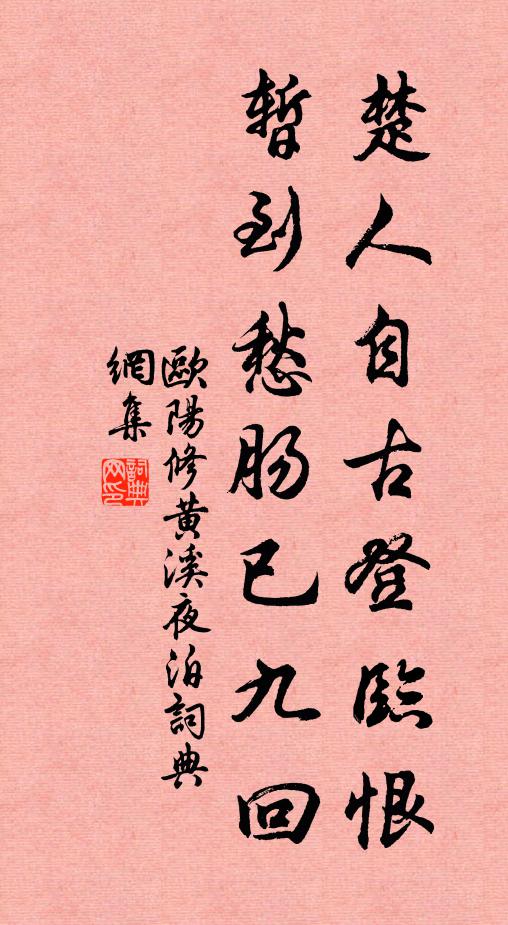 楚人自古登臨恨
暫到愁肠已九回
歐陽修黄溪夜泊詞典
網集
詞典
网印